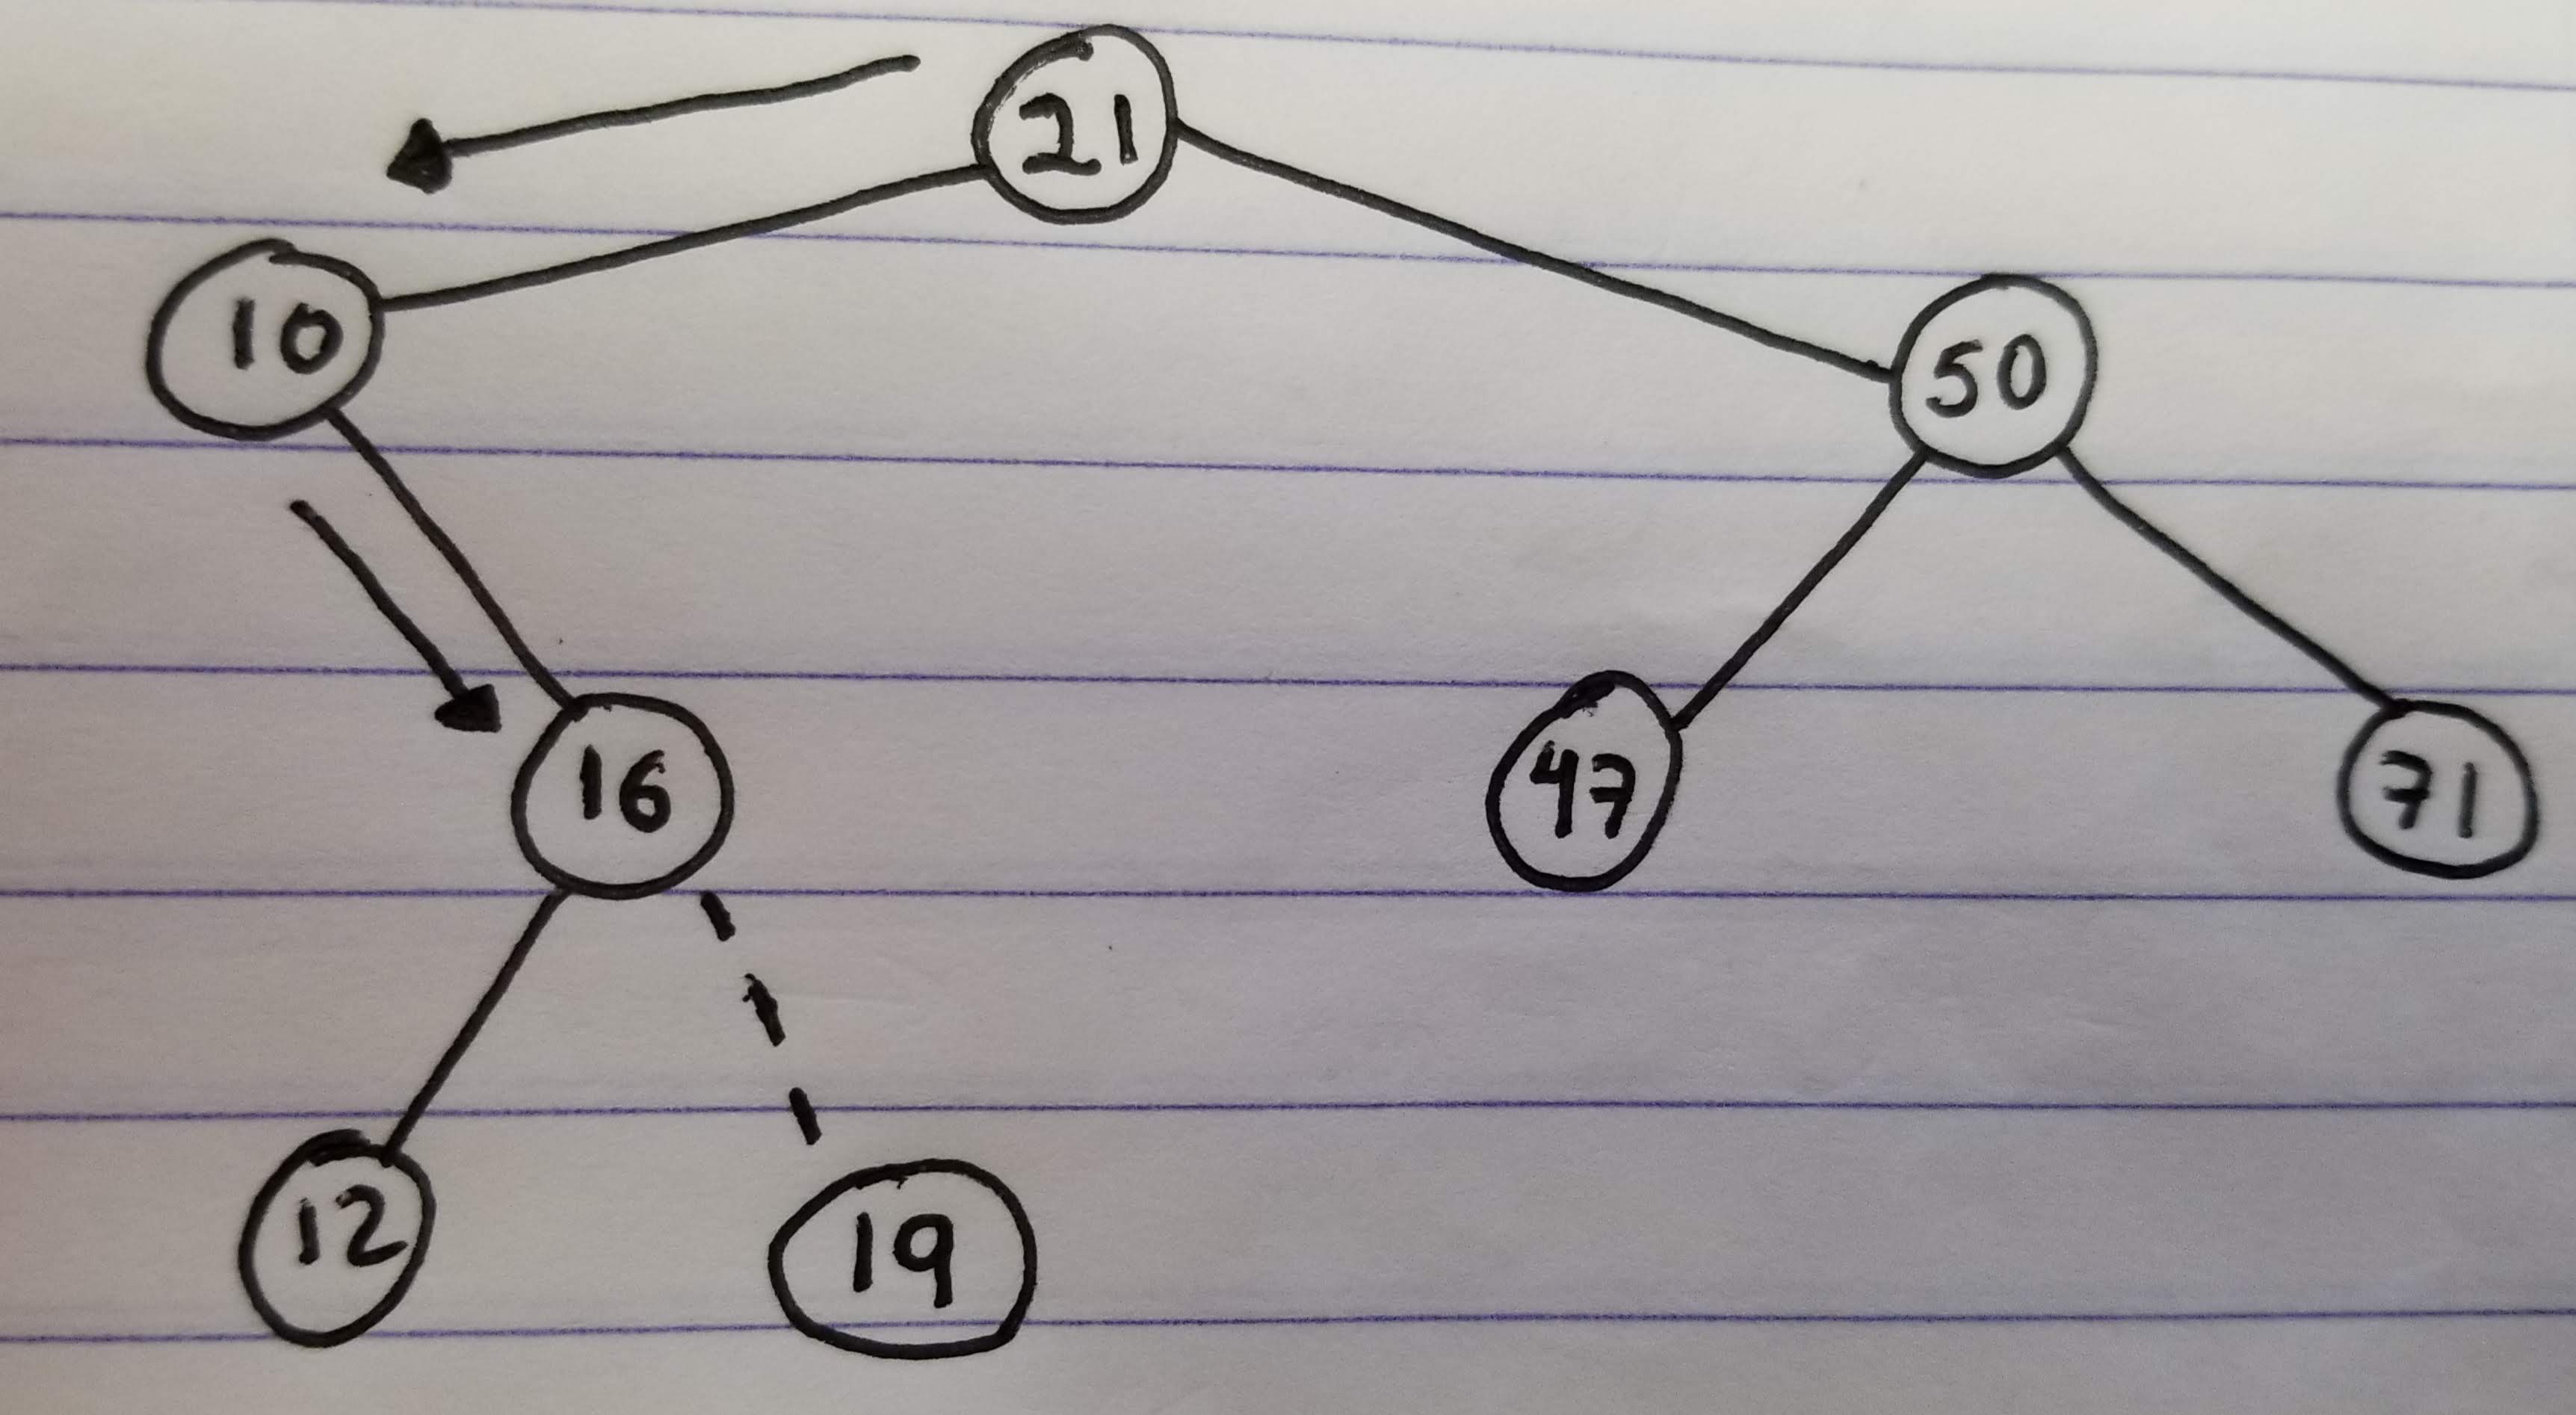 21
10
50
16
47
71
12
19